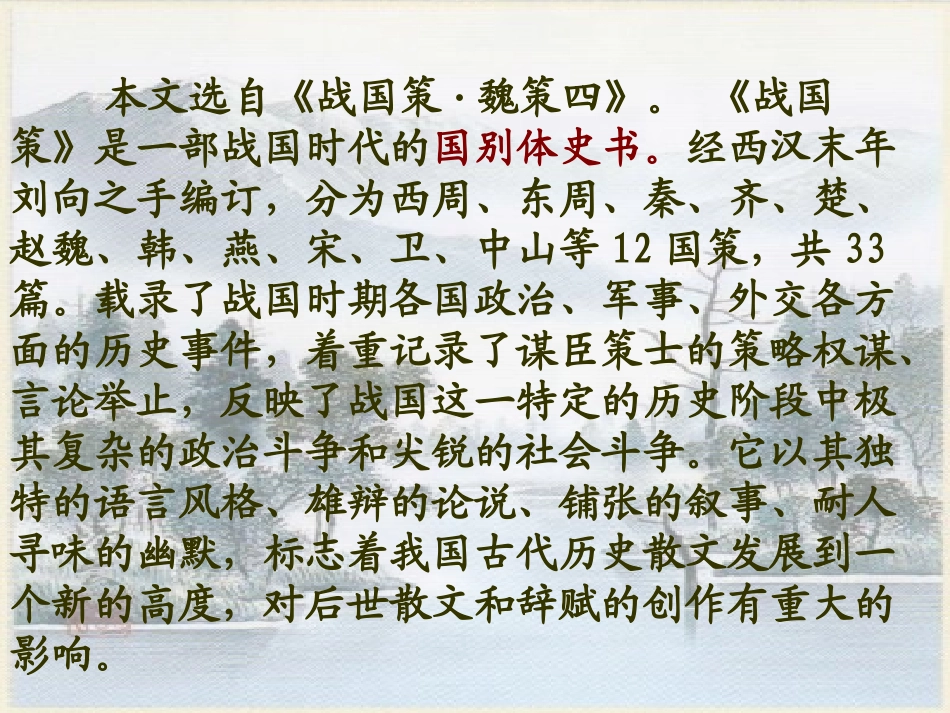 本文选自《战国策·魏策四》。 《战国
策》是一部战国时代的国别体史书。经西汉末年
刘向之手编订，分为西周、东周、秦、齐、楚、
赵魏、韩、燕、宋、卫、中山等 12 国策，共 33
篇。载录了战国时期各国政治、军事、外交各方
面的历史事件，着重记录了谋臣策士的策略权谋、
言论举止，反映了战国这一特定的历史阶段中极
其复杂的政治斗争和尖锐的社会斗争。它以其独
特的语言风格、雄辩的论说、铺张的叙事、耐人
寻味的幽默，标志着我国古代历史散文发展到一
个新的高度，对后世散文和辞赋的创作有重大的
影响。